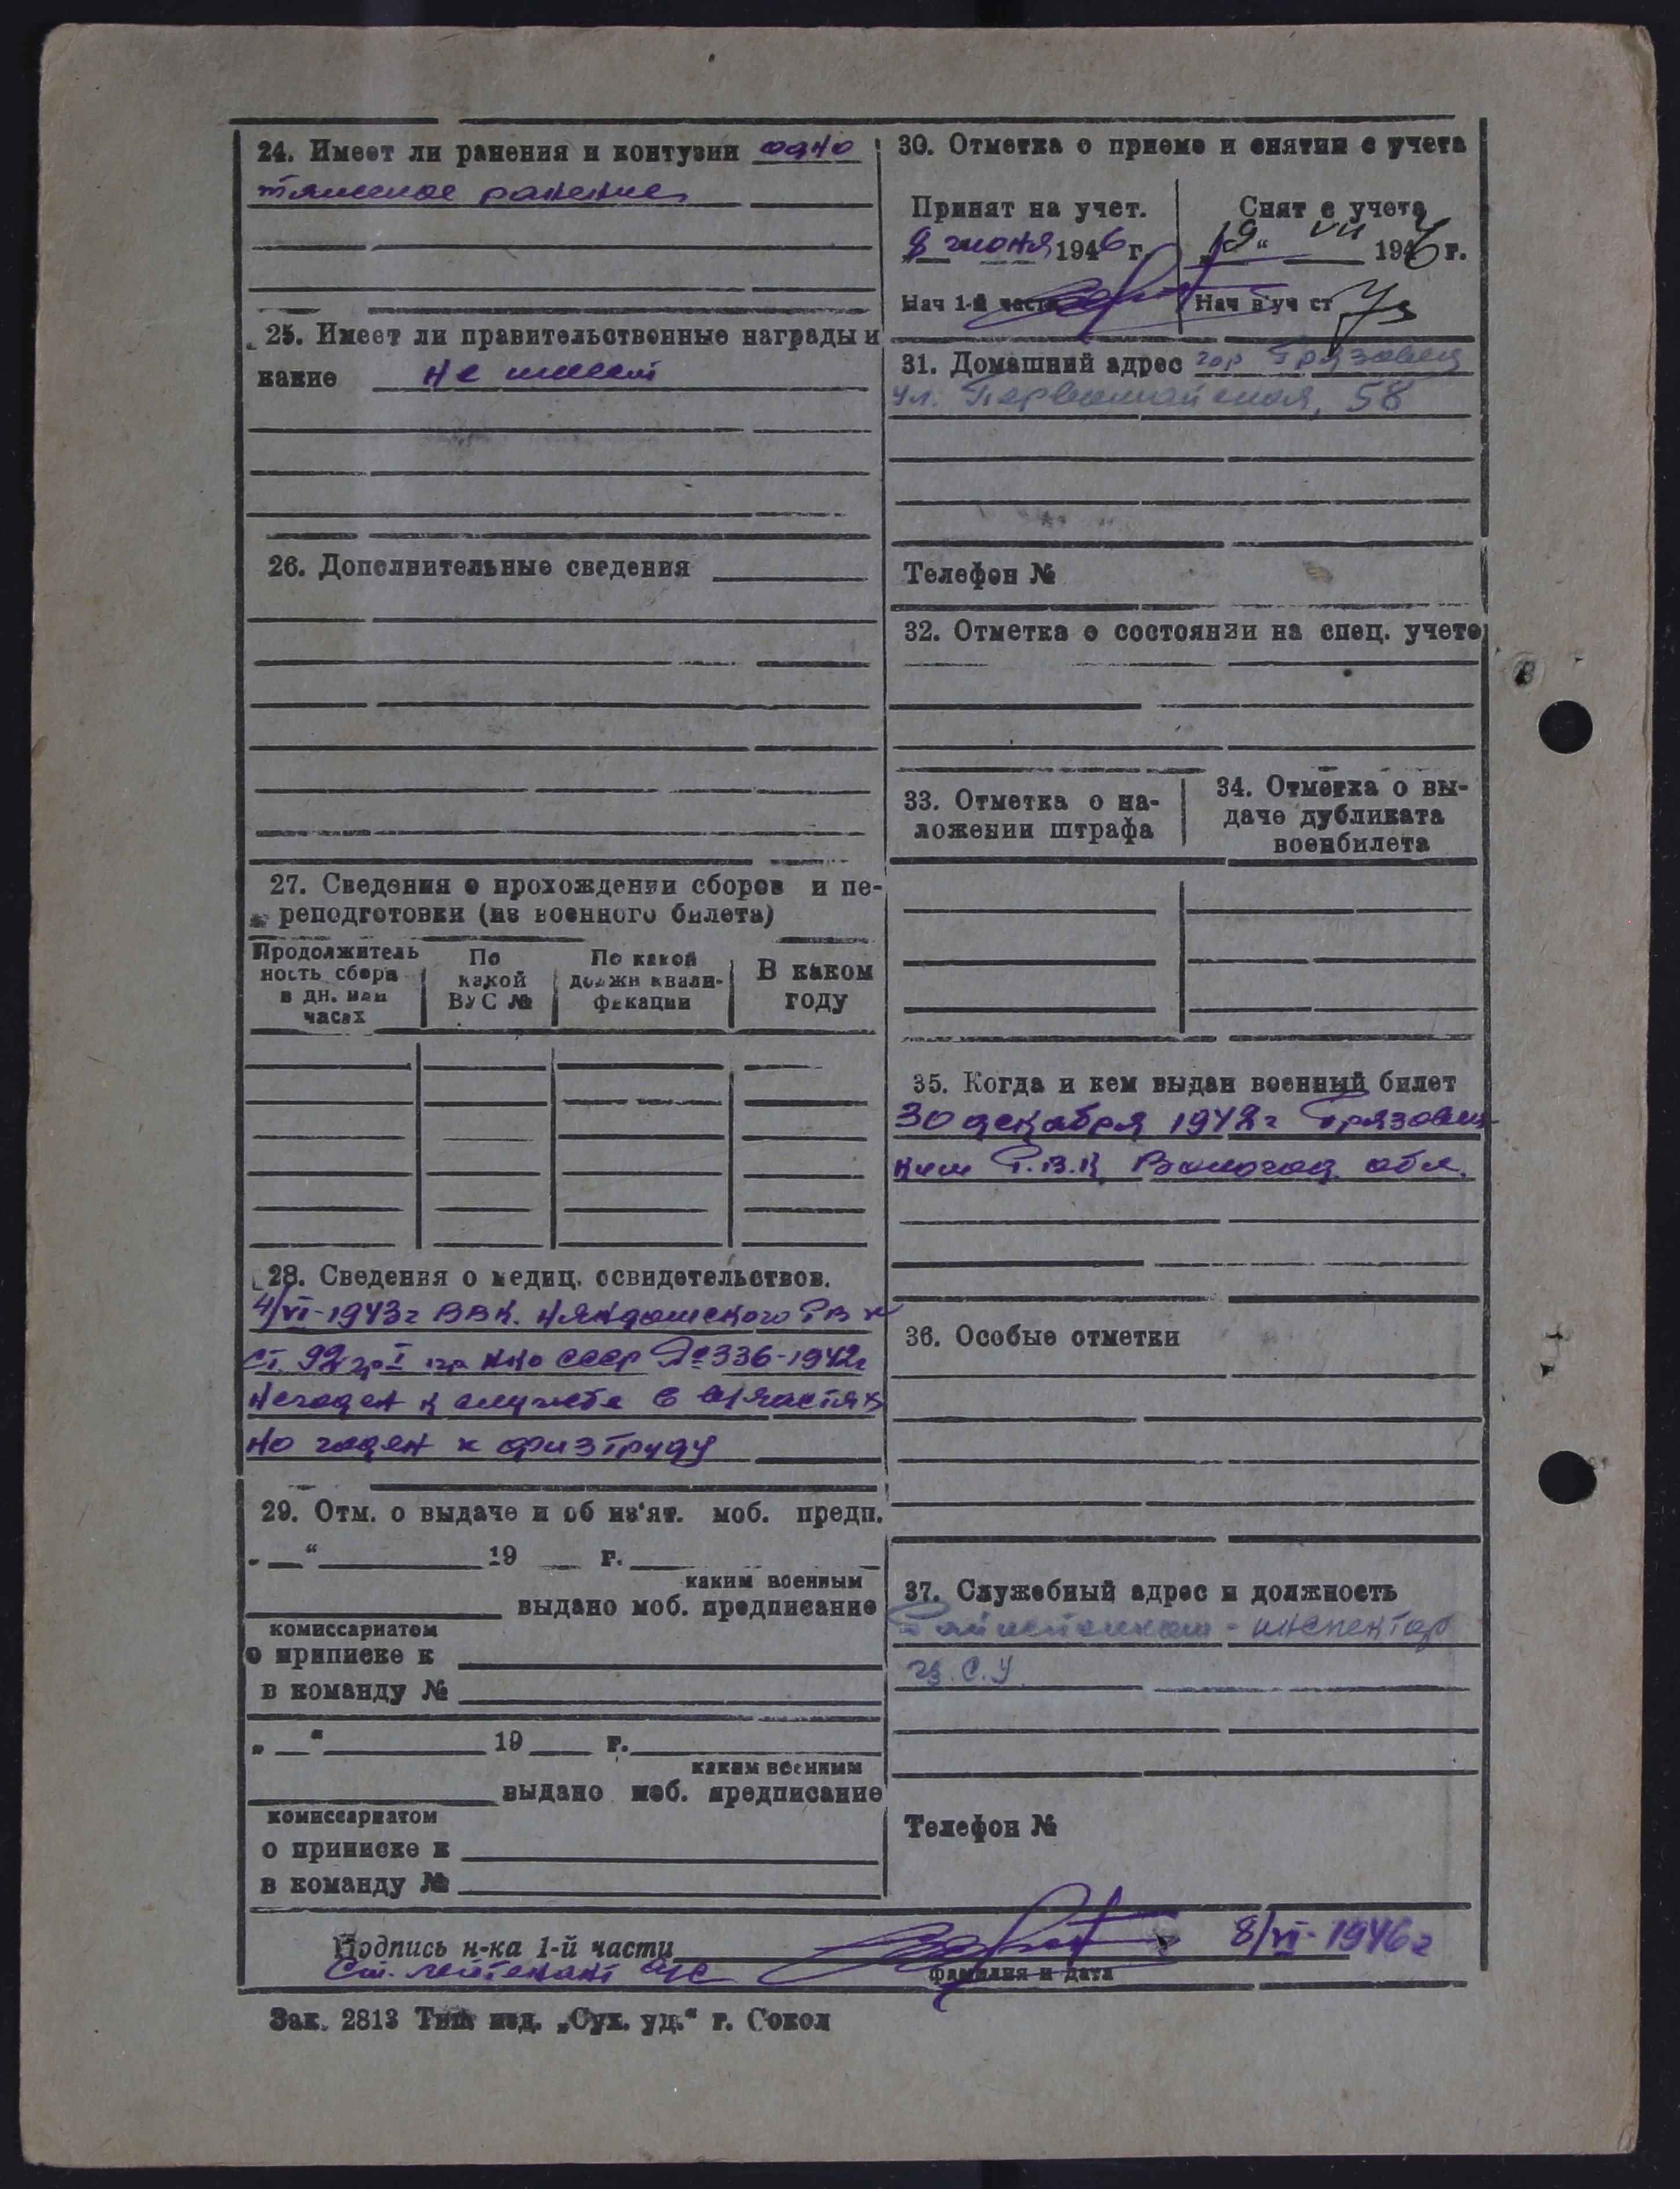 24. Имеет ли ранения и контузии одно
тяжелое ранение
25. Имеет ли правительственные награды и
какие не имеет
26. Дополнительные сведения
27. Сведения о прохождении сборов и пе-
реподготовки (из военного билета)
Продолжитель
ность сбора
в дн. или
часах
По
какой
ВУС №
По какой
должн квали-
фикации
В каком
году
28. Сведения о медиц. освидетельствов.
4/VI-1943г ВВК. Няндомского РВК
ст. 92 гр I пр НКО СССР № 336-1942г
Негоден к службе в
но годен к физтруду
29. Отм. о выдаче и об из'ят. моб. предп.
„ “ 19 г.
каким военным
выдано моб. предписание
комиссариатом
о приписке к
в команду №
„ “ 19 г.
каким военным
выдано моб. предписание
комиссариатом
о приписке к
в команду №
30. Отметка о приеме и снятии с учета
Принят на учет.
8 июня 1946 г.
Нач 1-й части
Снят с учета
19“ VII 1946 г.
Нач в уч ст
31. Домашний адрес гор Грязовец
ул. Первомайская, 58
Телефон №
32. Отметка о состоянии на спец. учете
33. Отметка о на-
ложении штрафа
34. Отметка о вы-
даче дубликата
военбилета
35. Когда и кем выдан военный билет
30 декабря 1942г Грязовец-
ким Р.В.К Вологод. обл.
36. Особые отметки
37. Служебный адрес и должность
инспектор
Телефон №
Подпись н-ка 1-й части
Ст. лейтенант
8/VI-1946г
фамилия и дата
Зак. 2813 Тип. изд. „Сух. уд.“ г. Сокол